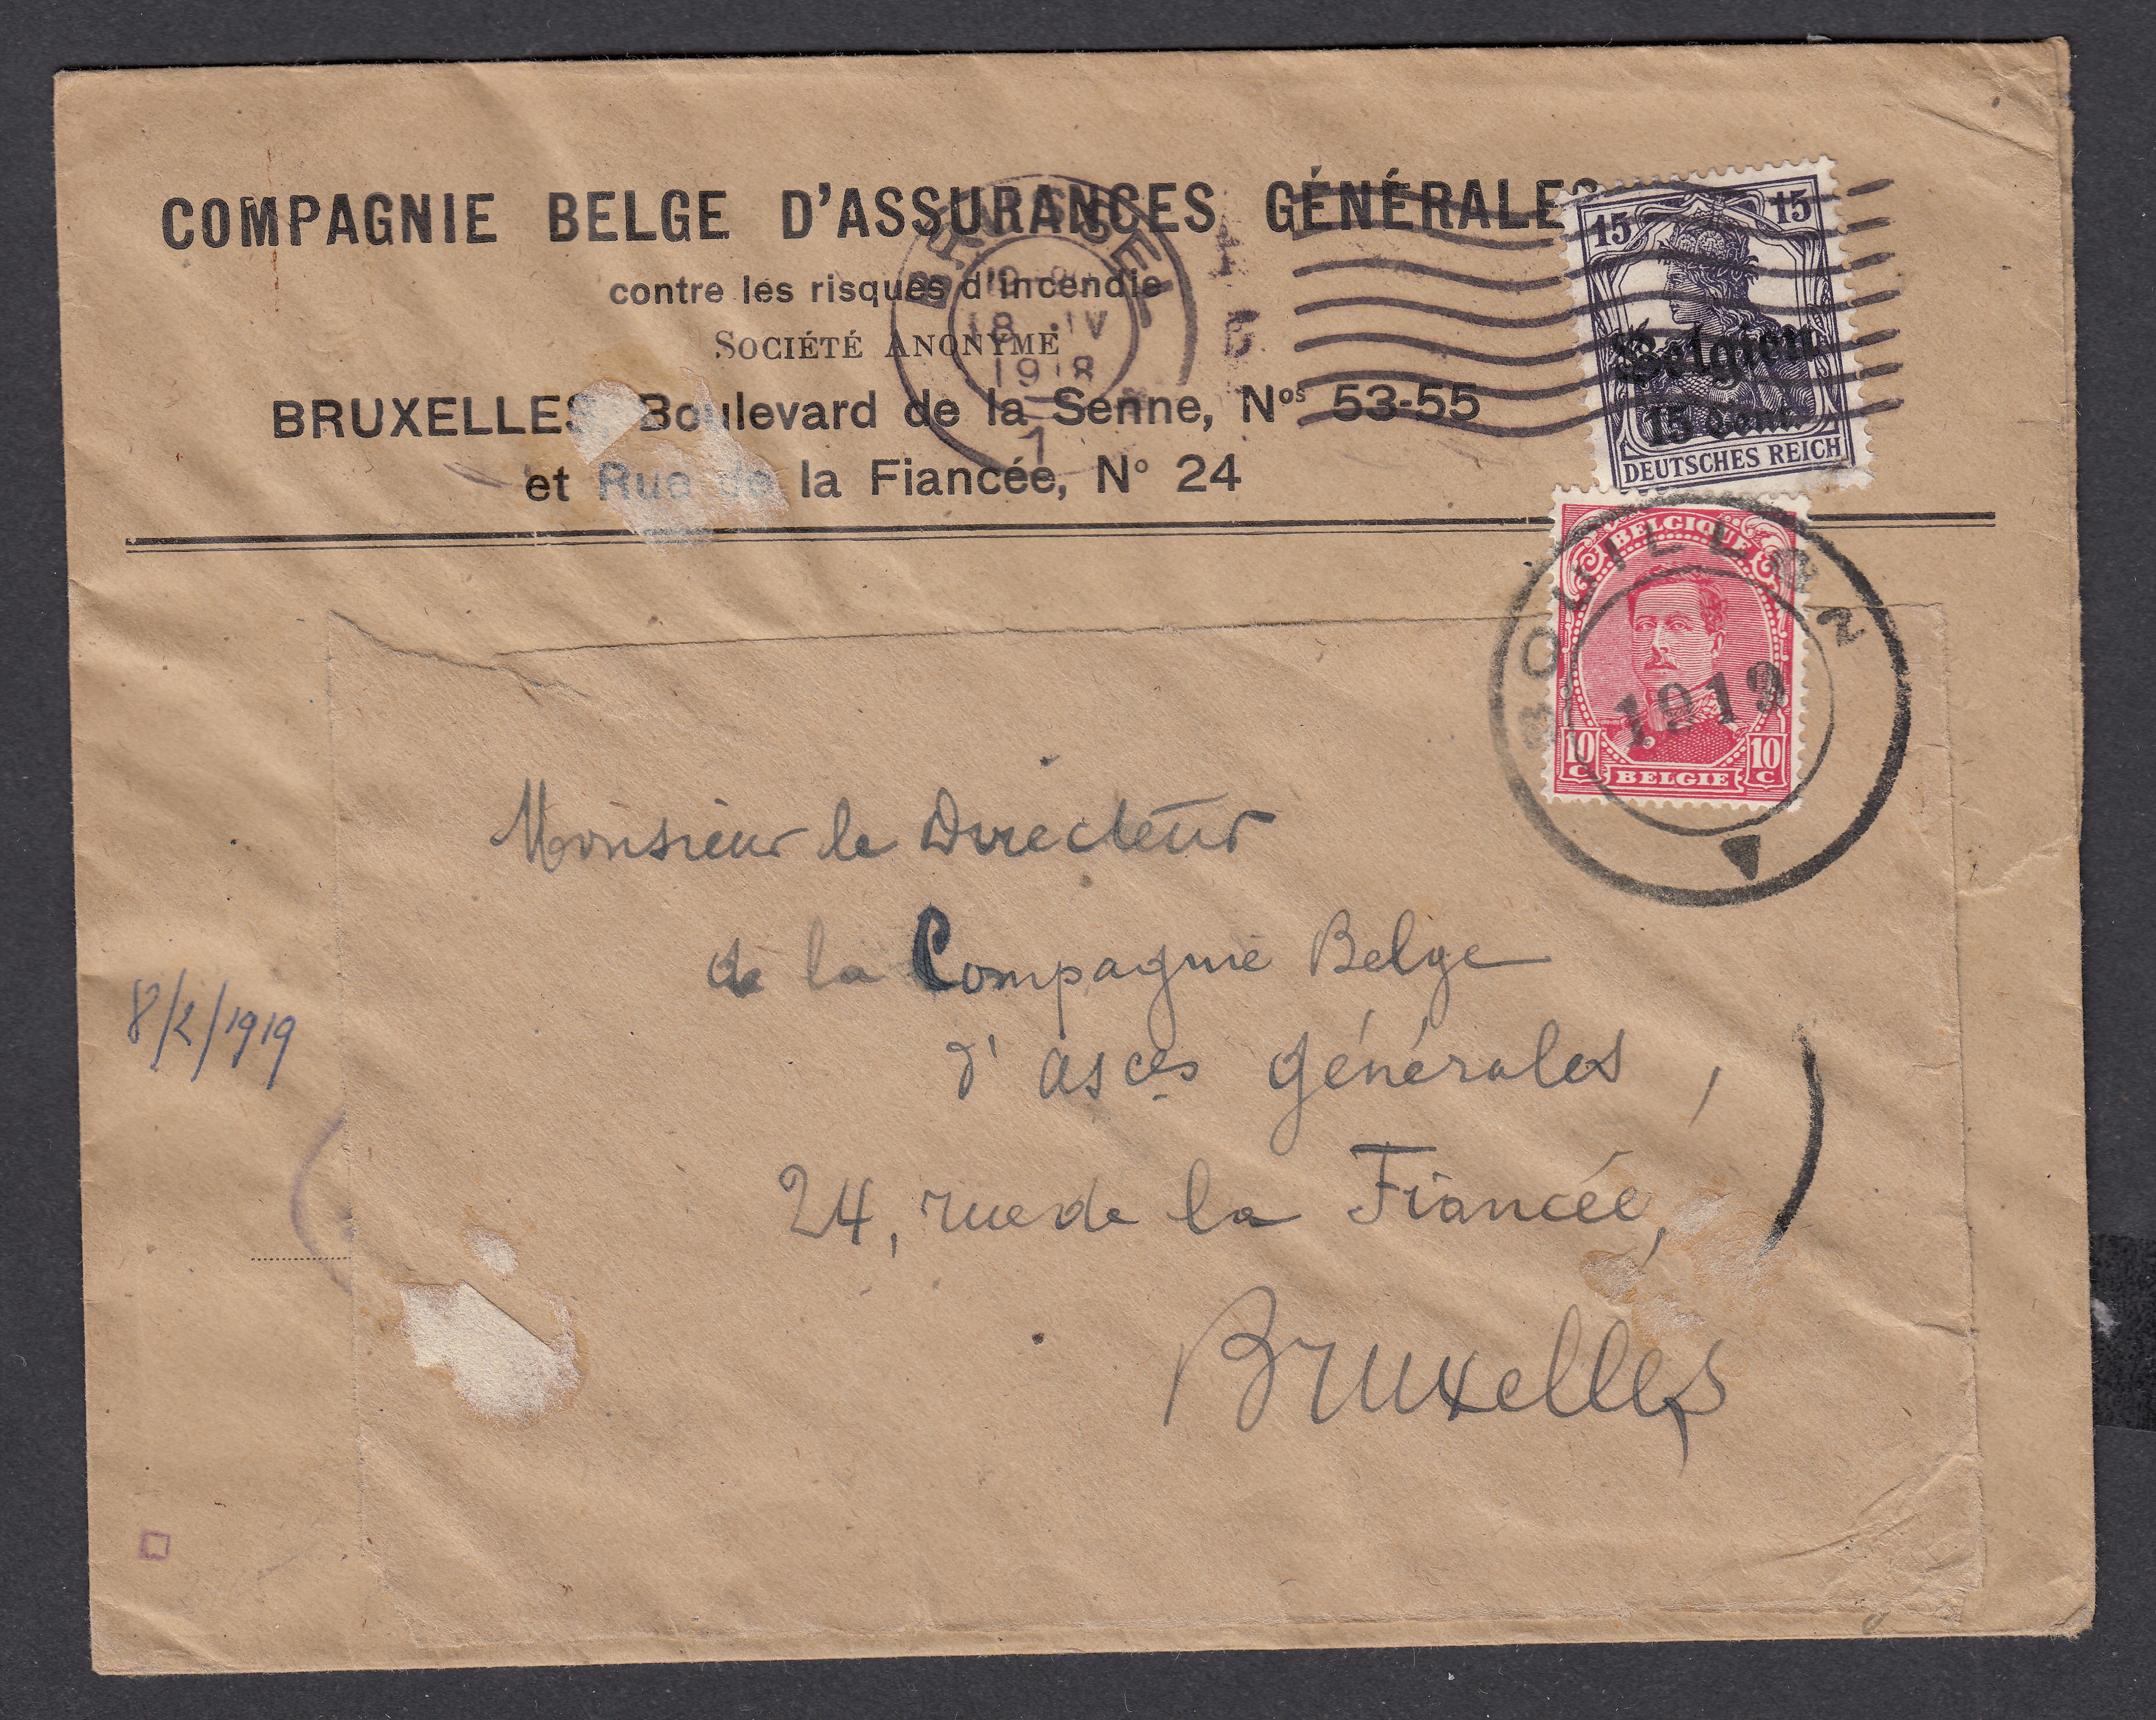 COMPAGNIE BELGE D'ASSURANCES GÉNÉRALES
contre les risques d'incendie
SOCIÉTÉ ANONYME
BRUXELLES, Boulevard de la Senne, Nos 53-55
et Rue de la Fiancée, N° 24
BRÜSSEL
18 IV
1918
1
15 15
Belgien
15 Cent.
DEUTSCHES REICH
BELGIQUE
10 C 10 C
BELGIE
BOUILLON
1919
Monsieur le Directeur
de la Compagnie Belge
d'asces générales,
24, rue de la Fiancée,
Bruxelles
8/2/1919